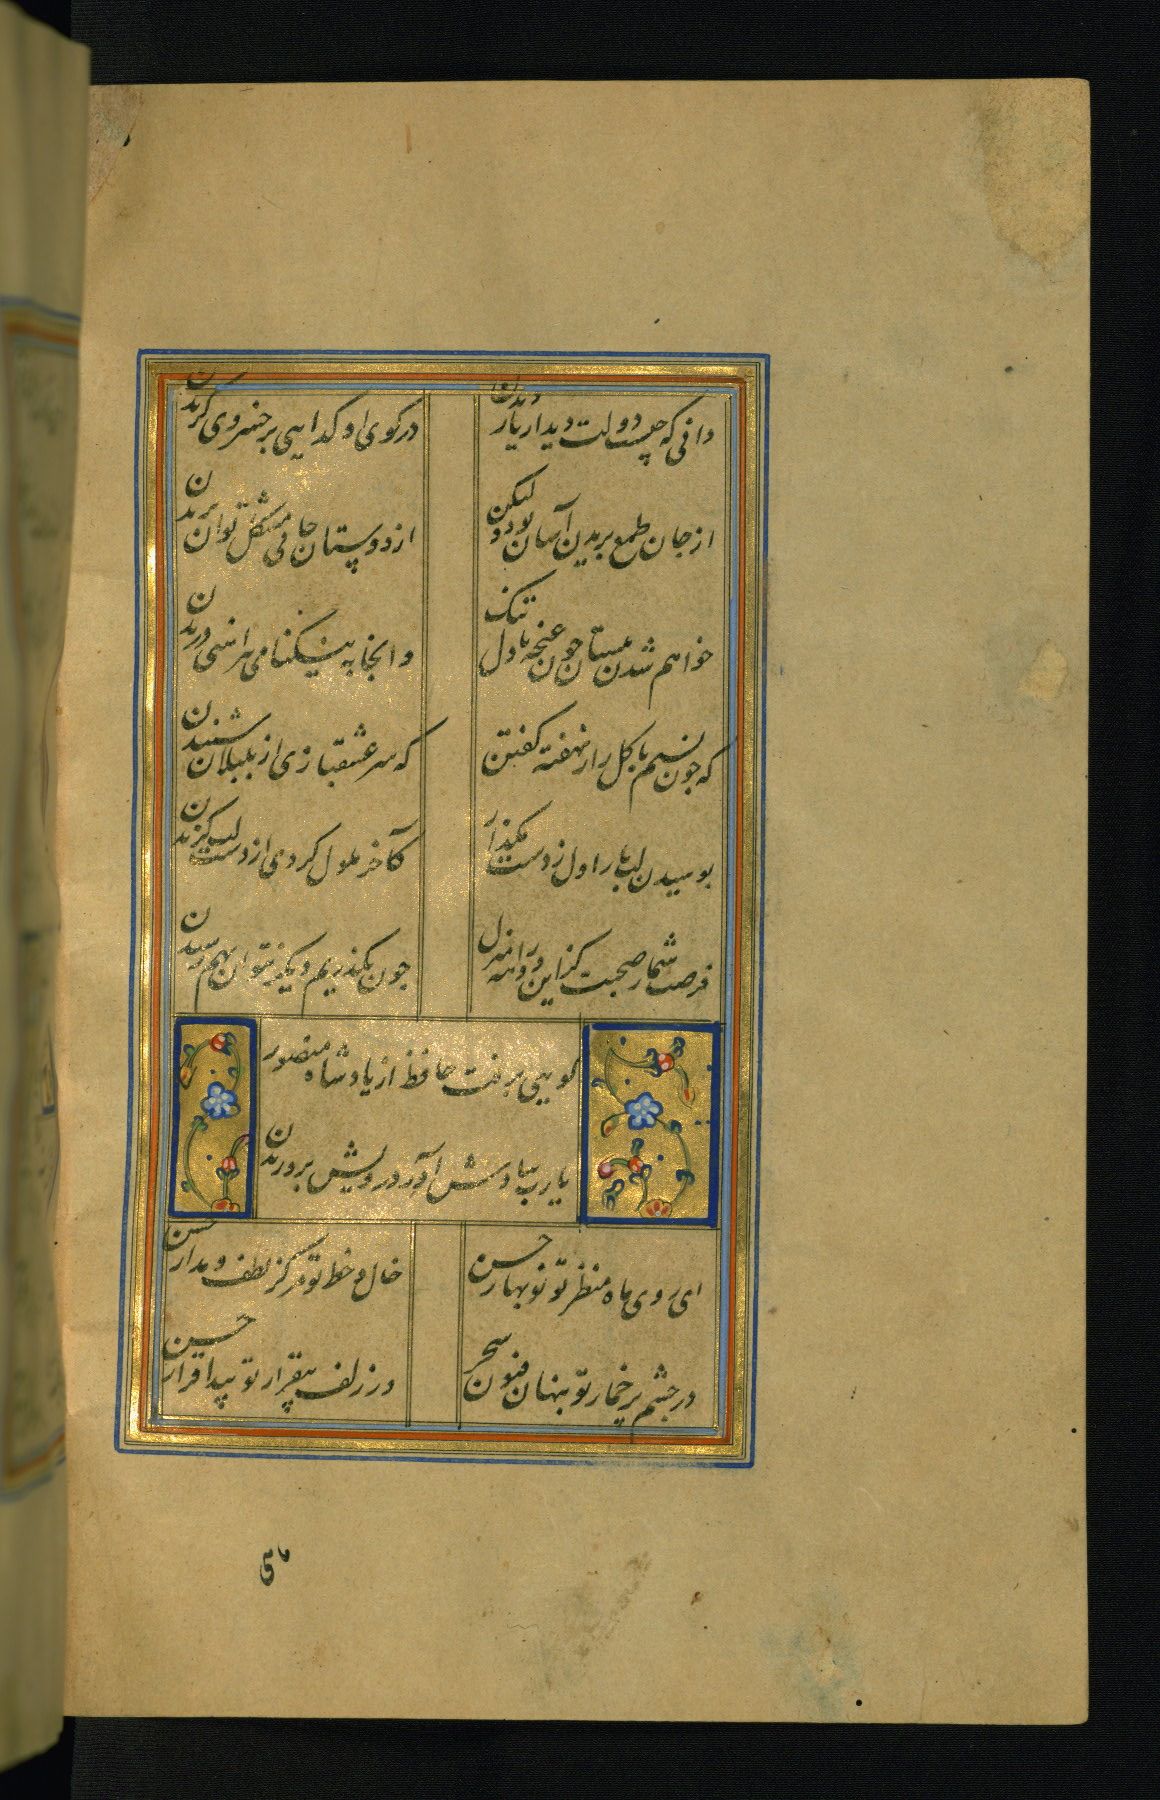 دانی که چیست دولت دیدار یار دیدن
در کوی او گدایی بر خسروی گزیدن
از جان طمع بریدن آسان بود ولیکن
از دوستان جانی مشکل توان بریدن
خواهم شدن ببستان چون غنچه با دل تنک
وانجا به نیکنامی پیراهنی دریدن
که چون نسیم با کل راز نهفته کفتن
که سر عشقبازی از بلبلان شنیدن
بوسیدن لب یار اول ز دست مکذار
کآخر ملول کردی از دست لب کزیدن
فرصت شمار صحبت کز این دو راهه منزل
چون بکذریم دیکر نتوان بهم رسیدن
کویی برفت حافظ از یاد شاه منصور
یا رب بیادش آور درویش پروریدن
ای روی ماه منظر تو نوبهار حسن
خال و خط تو مرکز لطف و مدار حسن
در چشم پر خمار تو پنهان فنون سحر
در زلف بیقرار تو پیدا قرار حسن